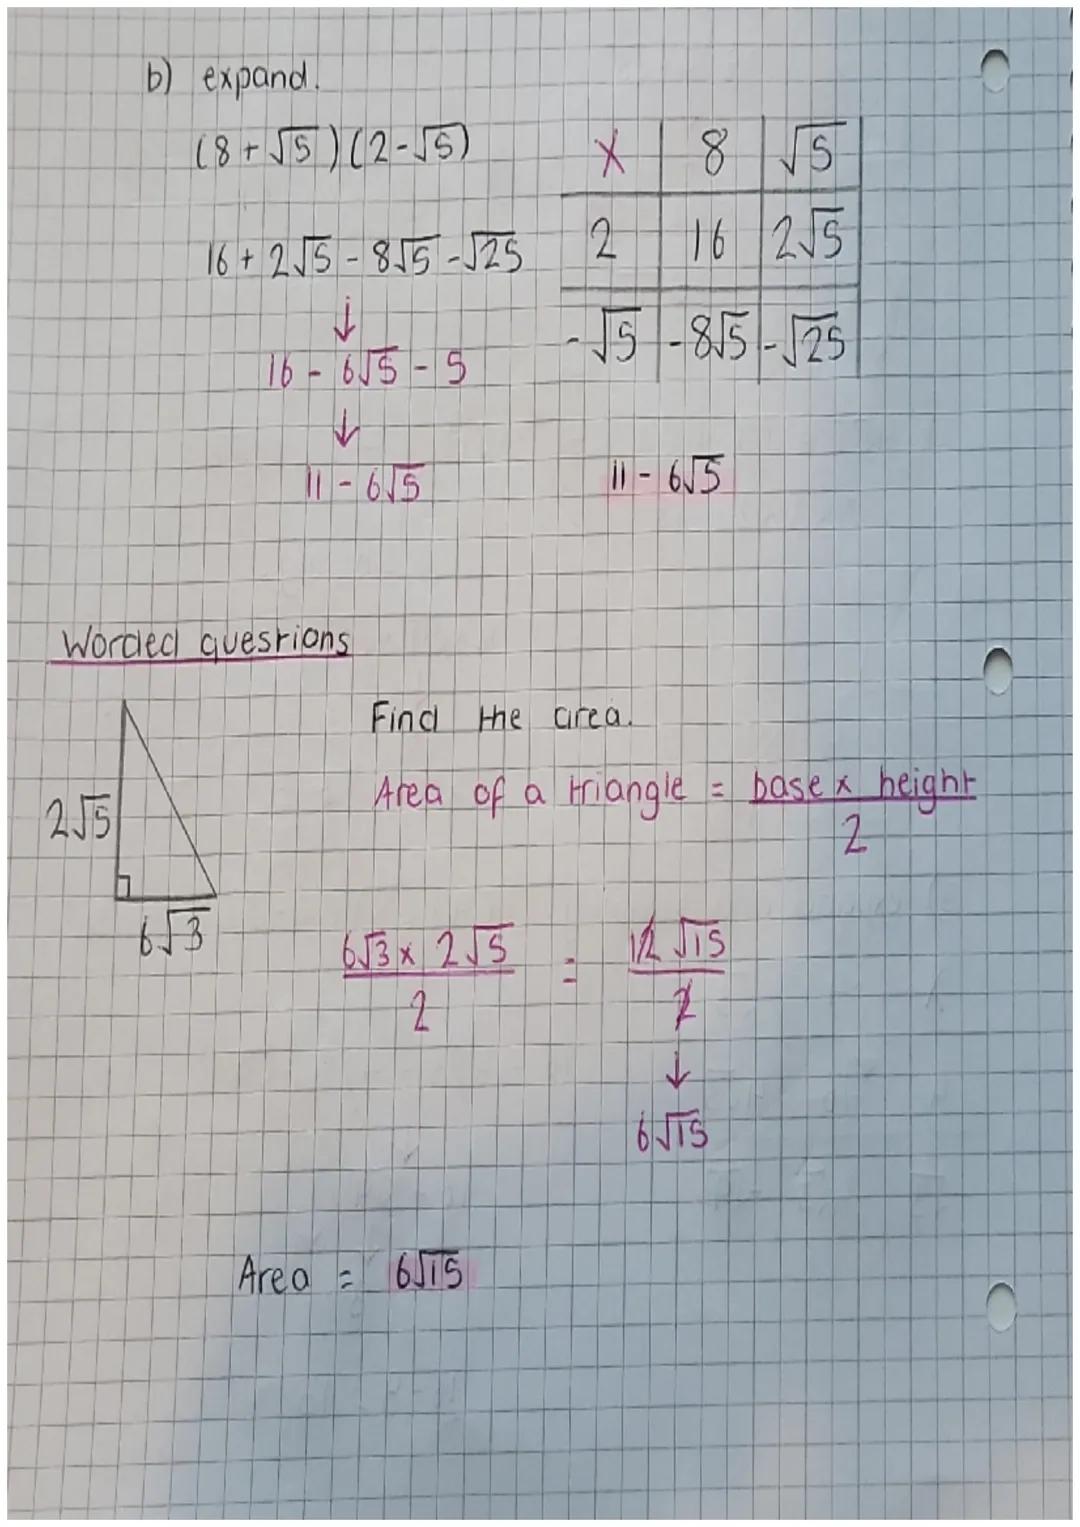 b) expand.
(8 + √5)(2 - √5)
16 + 2√5 - 8√5 - √25
↓
16 - 6√5 - 5
↓
11 - 6√5
× 8 √5
2 16 2√5
-√5 -8√5 -√25
11 - 6√5
Worded questions
2√5
6√3
Find the area.
Area of a triangle = base × height
2
6√3 × 2√5 = 12√15
2 2
↓
6√15
Area = 6√15